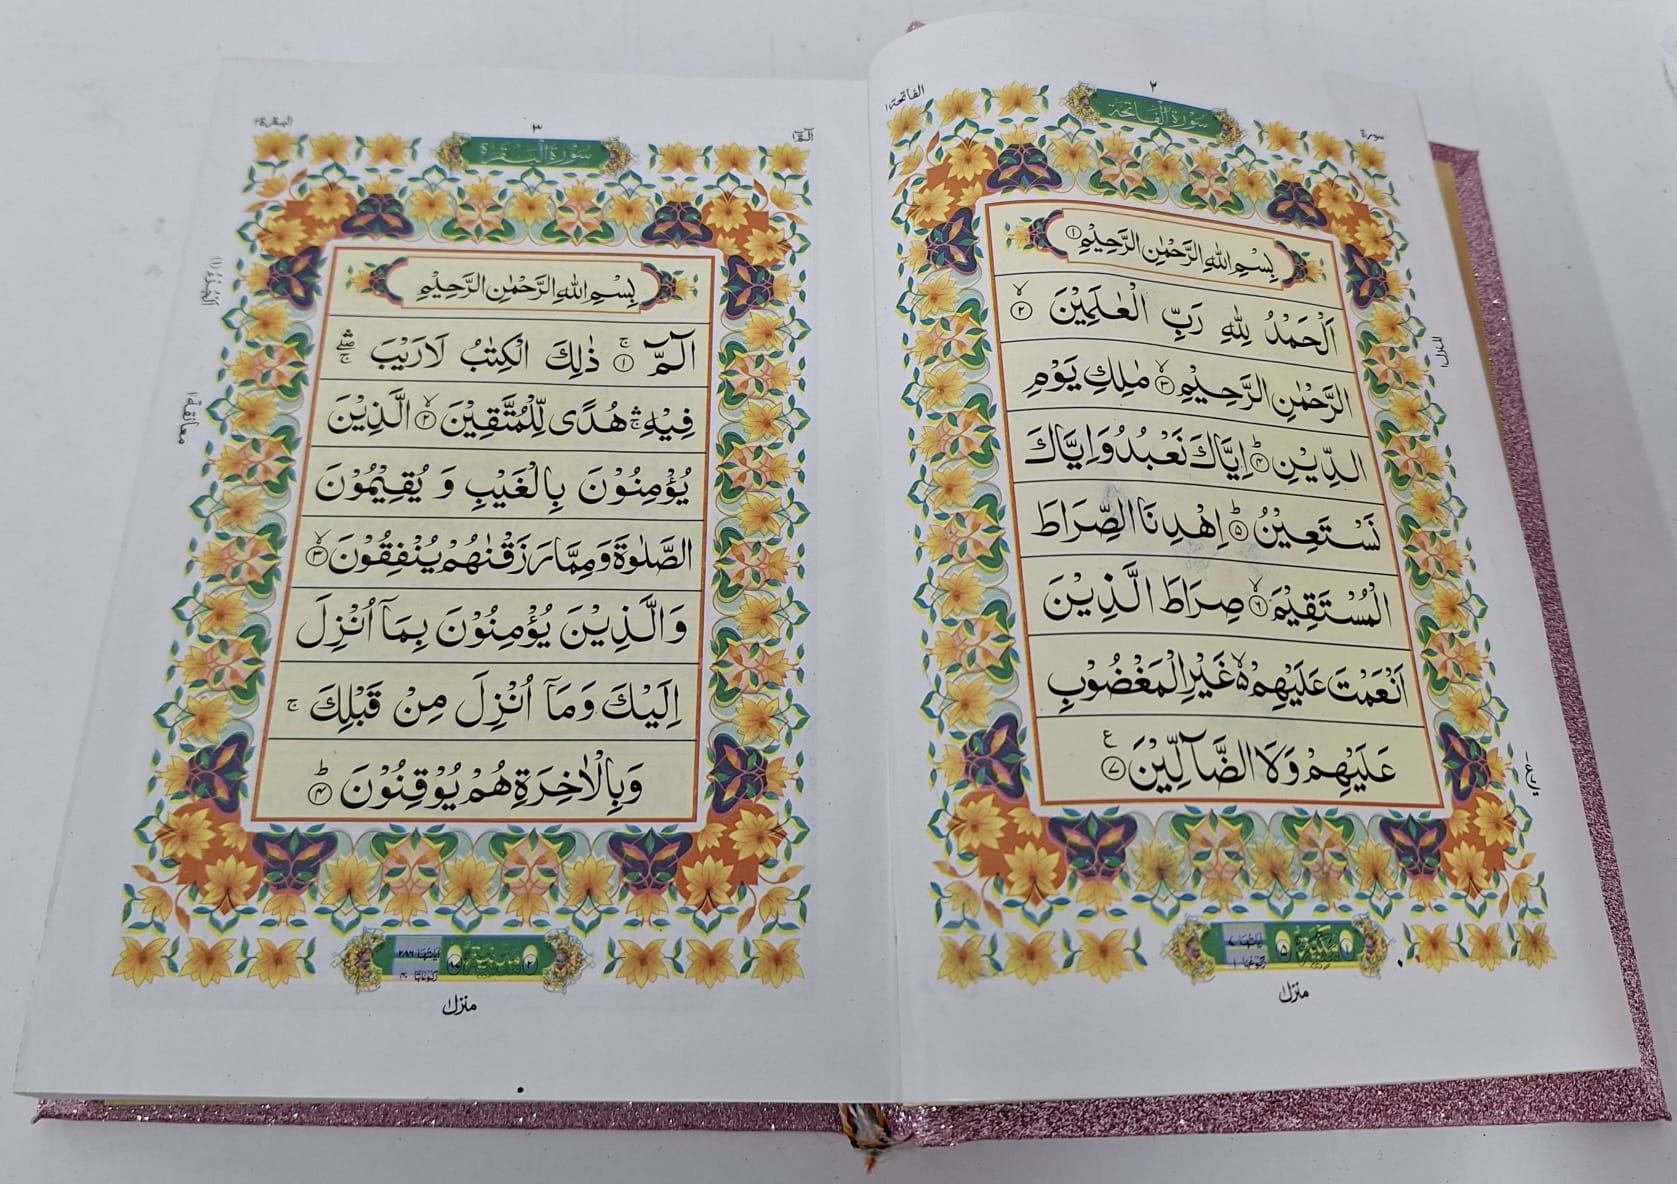 الفاتحة ١
٢
سورة
سُوْرَةُ الْفَاتِحَةِ
بِسْمِ اللّٰهِ الرَّحْمٰنِ الرَّحِيْمِ ۝١
اَلْحَمْدُ لِلّٰهِ رَبِّ الْعٰلَمِيْنَ ۙ۝٢
الرَّحْمٰنِ الرَّحِيْمِ ۙ۝٣ مٰلِكِ يَوْمِ
الدِّيْنِ ؕ۝٤ اِيَّاكَ نَعْبُدُ وَاِيَّاكَ
نَسْتَعِيْنُ ؕ۝٥ اِهْدِنَا الصِّرَاطَ
الْمُسْتَقِيْمَ ۙ۝٦ صِرَاطَ الَّذِيْنَ
اَنْعَمْتَ عَلَيْهِمْ ۙ۬ غَيْرِ الْمَغْضُوْبِ
عَلَيْهِمْ وَلَا الضَّآلِّيْنَ ۝٧ ع
١ مَكِّيَّةٌ ٥
اٰيَاتُهَا ٧
رُكُوْعُهَا ١
منزل ١
البقرة ٢
٣
الٓمّٓ ١
سُوْرَةُ الْبَقَرَةِ
بِسْمِ اللّٰهِ الرَّحْمٰنِ الرَّحِيْمِ
الٓمّٓ ۚ۝١ ذٰلِكَ الْكِتٰبُ لَا رَيْبَ ۛۖۚ
فِيْهِ ۛۚ هُدًى لِّلْمُتَّقِيْنَ ۙ۝٢ الَّذِيْنَ
يُؤْمِنُوْنَ بِالْغَيْبِ وَ يُقِيْمُوْنَ
الصَّلٰوةَ وَمِمَّا رَزَقْنٰهُمْ يُنْفِقُوْنَ ۙ۝٣
وَالَّذِيْنَ يُؤْمِنُوْنَ بِمَآ اُنْزِلَ
اِلَيْكَ وَمَآ اُنْزِلَ مِنْ قَبْلِكَ ۚ
وَبِالْاٰخِرَةِ هُمْ يُوْقِنُوْنَ ؕ۝٤
الْجُزْءُ (١)
معانقة ١
٢ مَدَنِيَّةٌ ٨٧
اٰيَاتُهَا ٢٨٦
رُكُوْعَاتُهَا ٤٠
منزل ١